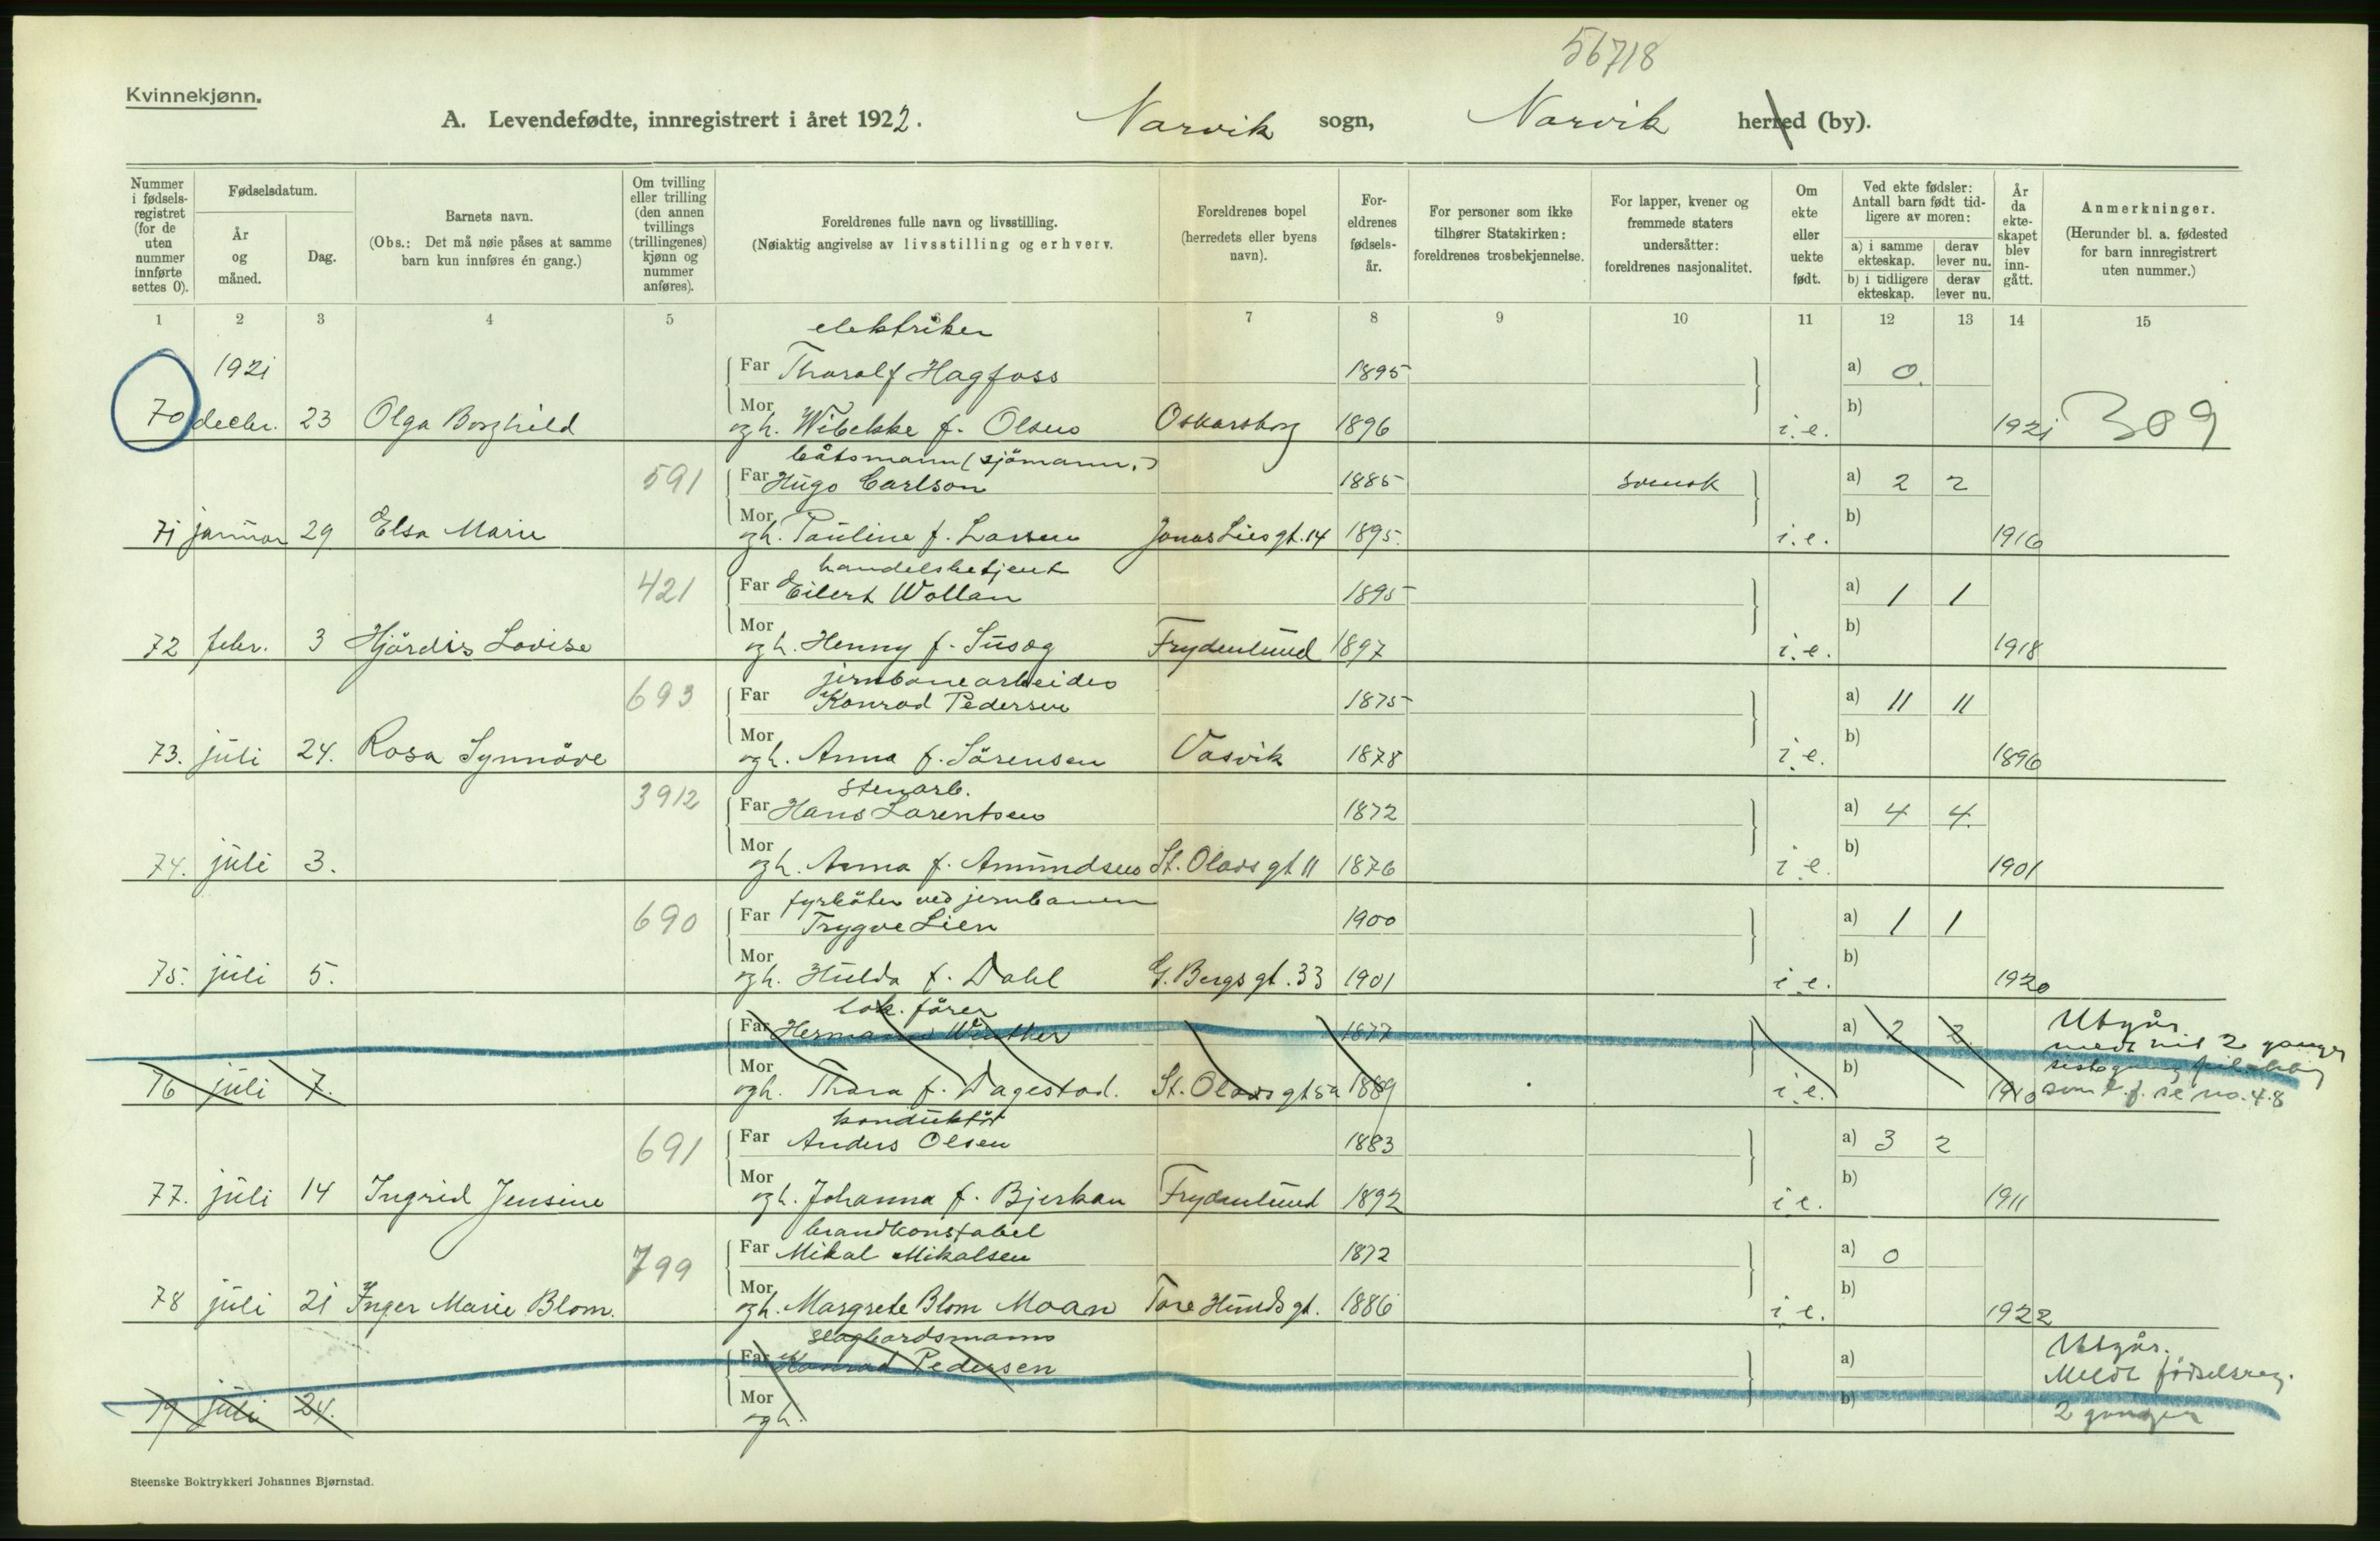 56718
Kvinnekjønn.
A. Levendefødte, innregistrert i året 1922. Narvik sogn, Narvik herred (by).
Nummer i fødselsregistret (for de uten nummer innførte settes 0).
Fødselsdatum.
År og måned.
Dag.
Barnets navn.
(Obs.: Det må nøie påses at samme barn kun innføres én gang.)
Om tvilling eller trilling (den annen tvillings (trillingenes) kjønn og nummer anføres).
Foreldrenes fulle navn og livsstilling.
(Nøiaktig angivelse av livsstilling og erhverv.
Foreldrenes bopel (herredets eller byens navn).
Foreldrenes fødselsår.
For personer som ikke tilhører Statskirken: foreldrenes trosbekjennelse.
For lapper, kvener og fremmede staters undersåtter: foreldrenes nasjonalitet.
Om ekte eller uekte født.
Ved ekte fødsler: Antall barn født tidligere av moren:
a) i samme ekteskap. derav lever nu.
b) i tidligere ekteskap. derav lever nu.
År da ekteskapet blev inngått.
Anmerkninger.
(Herunder bl. a. fødested for barn innregistrert uten nummer.)
1 2 3 4 5 6 7 8 9 10 11 12 13 14 15
elektriker
1921 Far Tharalf Hagfoss 1895 a) 0
70 decbr. 23 Olga Borghild Mor og h. Wibekke f. Olsen Oskarsborg 1896 i.e. b) 1921 309
båtsmann (sjömann.)
591 Far Hugo Carlson 1885 svensk a) 2 2
71 januar 29 Elsa Marie Mor og h. Pauline f. Larsen Jonas Lies gt. 14 1895. i.e. b) 1916
handelsbetjent
421 Far Eilert Wollan 1895 a) 1 1
72 febr. 3 Hjördis Lovise Mor og h. Henny f. Susæg Frydenlund 1897 i.e. b) 1918
jernbanearbeider
693 Far Konrad Pedersen 1875 a) 11 11
73. juli 24. Rosa Synnöve Mor og h. Anna f. Sörensen Vasvik 1878 i.e. b) 1896
stenarb.
3912 Far Hans Larentsen 1872 a) 4 4.
74. juli 3. Mor og h. Anna f. Amundsen St. Olavs gt 11 1876 i.e. b) 1901
fyrböter ved jernbanen
690 Far Trygve Lien 1900 a) 1 1
75. juli 5. Mor og h. Hulda f. Dahl G. Bergs gt. 33 1901 i.e. b) 1920
lok. förer
Far Hermann Winther 1877 a) 2 2 Utgår.
76 juli 7. Mor og h. Thora f. Dagestad. St. Olavs gt 5a 1889 i.e. b) 1910 2 ganger
som l. f. se no. 48
konduktör
691 Far Anders Olsen 1883 a) 3 2
77. juli 14 Ingrid Jensine Mor og h. Johanna f. Bjerkan Frydenlund 1892 i.e. b) 1911
brandkonstabel
799 Far Mikal Mikalsen 1872 a) 0
78 juli 21 Inger Marie Blom. Mor og h. Margrete Blom Moan Tore Hunds gt. 1886 i.e. b) 1922
slagbordsmann
Far Konrad Pedersen a) Utgår.
79 juli 24. Mor og h. b) Meldt fødselsreg.
2 ganger
Steenske Boktrykkeri Johannes Bjørnstad.